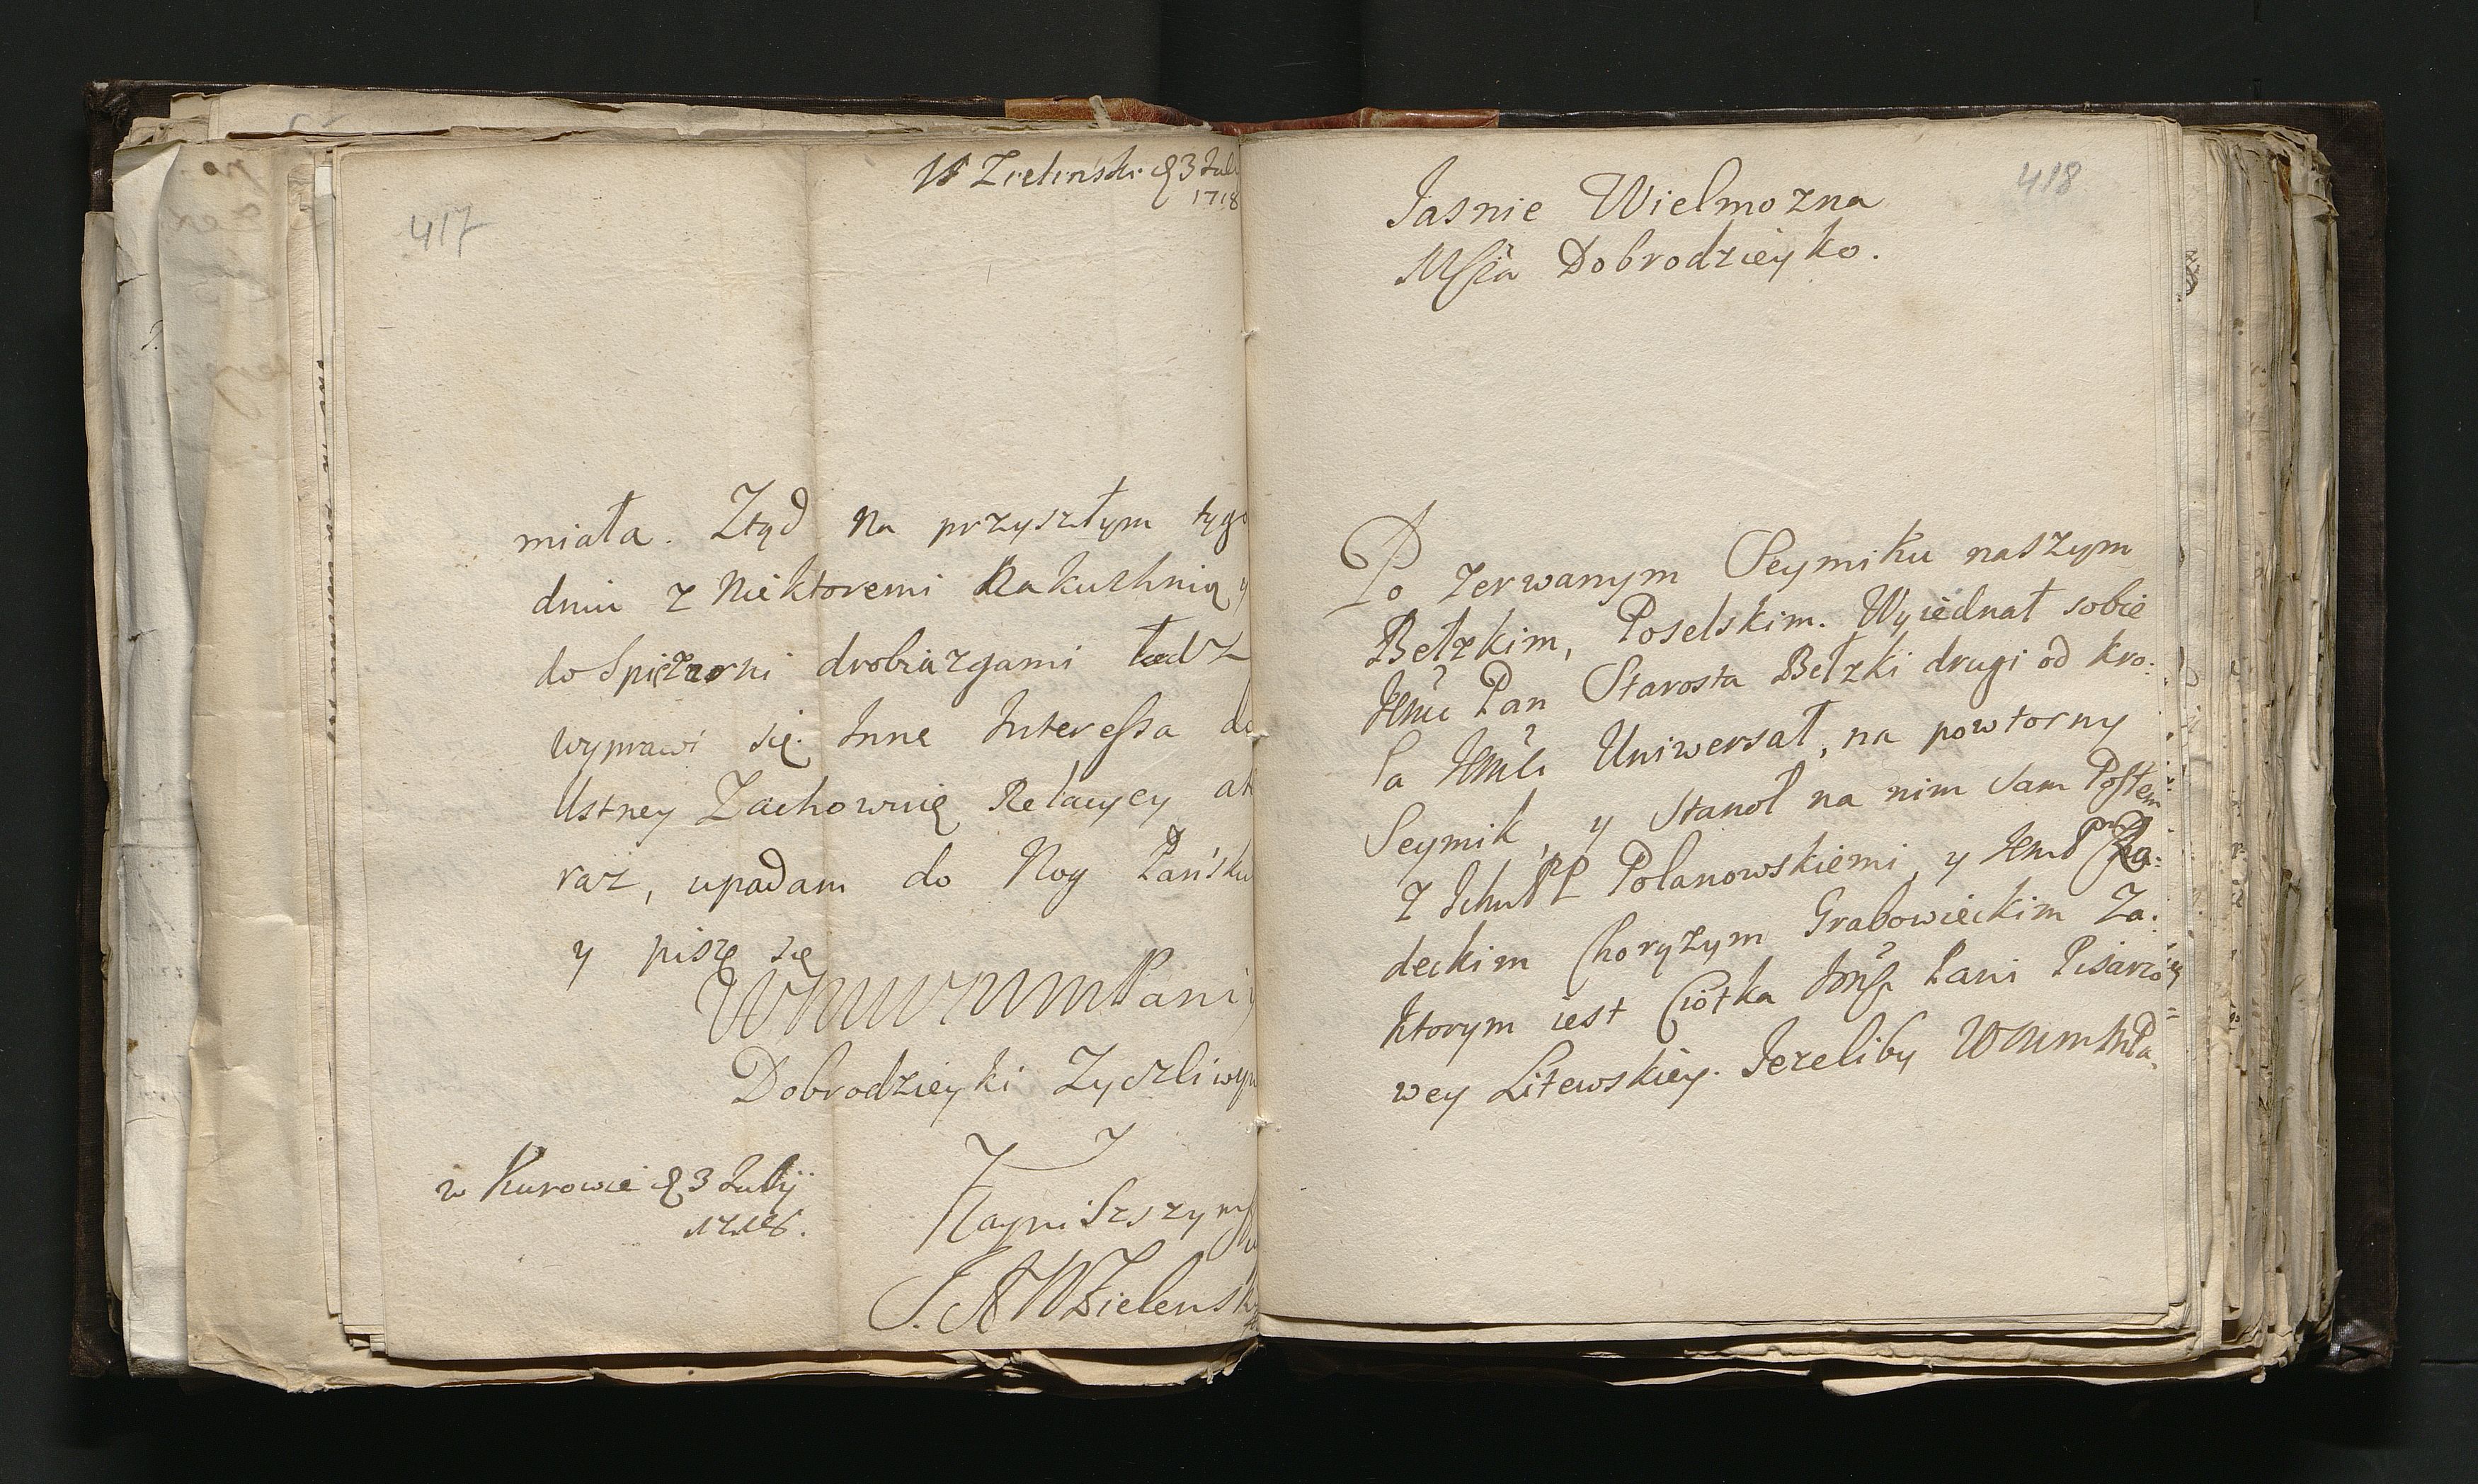 417
W Zielinski d 3 Jul
1718
miała. Ztąd na przyszłym tygo
dniu z niektoremi na kuchnią y
do Spiżarni drobiazgami ładz
wyprawi się. Inne Interessa do
Ustney Zachowuię Relacyey a
raz, upadam do Nog Pańskich
y piszę się
Pani
Dobrodzieyki Zyczliwym
Y
Nayniszszym
w Kurowie d 3 Julij
1718.
J. A W Zielensk
418
Jasnie Wielmozna
Mścia Dobrodzieyko.
Po zerwanym Seymiku naszym
Bełzkim, Poselskim. Wyiednał sobie
Jmć Pan Starosta Bełzki drugi od kro:
la Jmći Uniwersał, na powtorny
Seymik, y Stanoł na nim Sam Posłem
z Ichm PP Polanowskiemi, y Jmć P Ra:
deckim Chorążym Grabowieckim Za:
ktorym iest Ciotka Jmść Pani Pisarzo
wey Litewskiey. Jezeliby